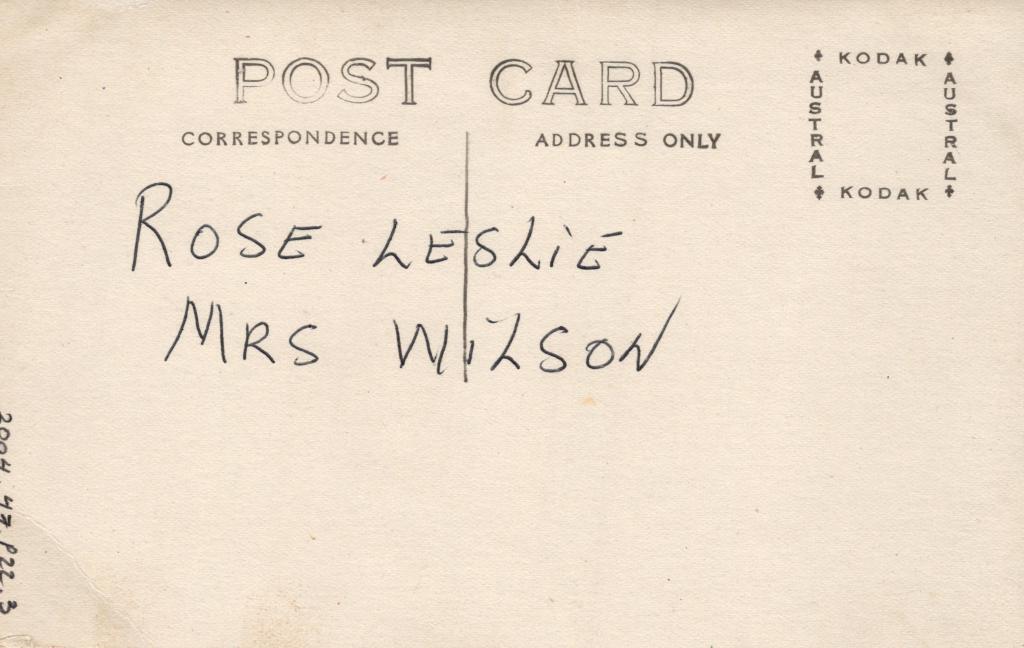 POST CARD
CORRESPONDENCE
ADDRESS ONLY
KODAK
AUSTRAL
AUSTRAL
KODAK
ROSE LESLIE
MRS WILSON
2004.47.P22.3